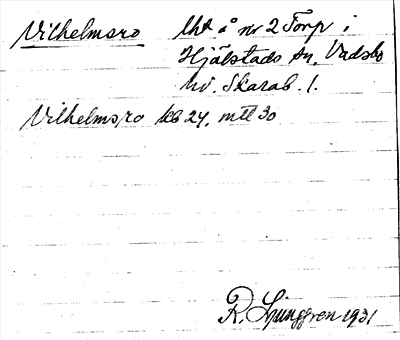 Vilhelmsro lht å nr 2 Torp i
Hjälstads sn, Vadsbo
hd. Skarab. l.
Vilhelmsro kb 24, mtl 30
R. Ljunggren 1931